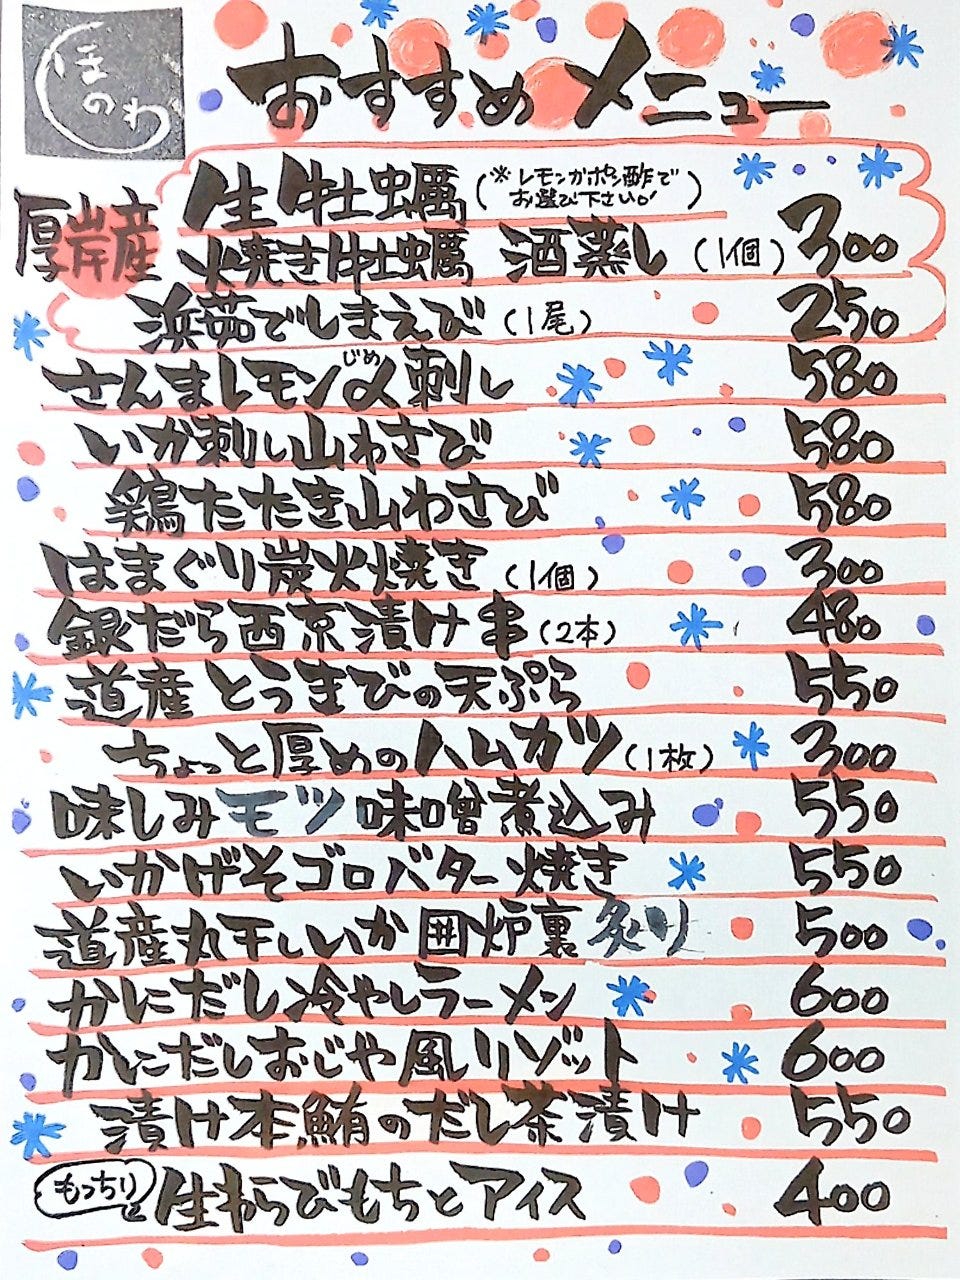 ほのわ
おすすめメニュー
厚岸産
生牡蠣(※レモンかポン酢でお選び下さい。)
焼き牡蠣 酒蒸し(1個) 300
浜茹でしまえび(1尾) 250
さんまレモン〆刺し 580
じめ
いか刺し山わさび 580
鶏たたき山わさび 580
はまぐり炭火焼き(1個) 300
銀だら西京漬け串(2本) 480
道産とうきびの天ぷら 550
ちょっと厚めのハムカツ(1枚) 300
味しみモツ味噌煮込み 550
いかげそゴロバター焼き 550
道産丸干しいか囲炉裏炙り 500
かにだし冷やしラーメン 600
かにだしおじや風リゾット 600
漬け本鮪のだし茶漬け 550
もっちり
生わらびもちとアイス 400